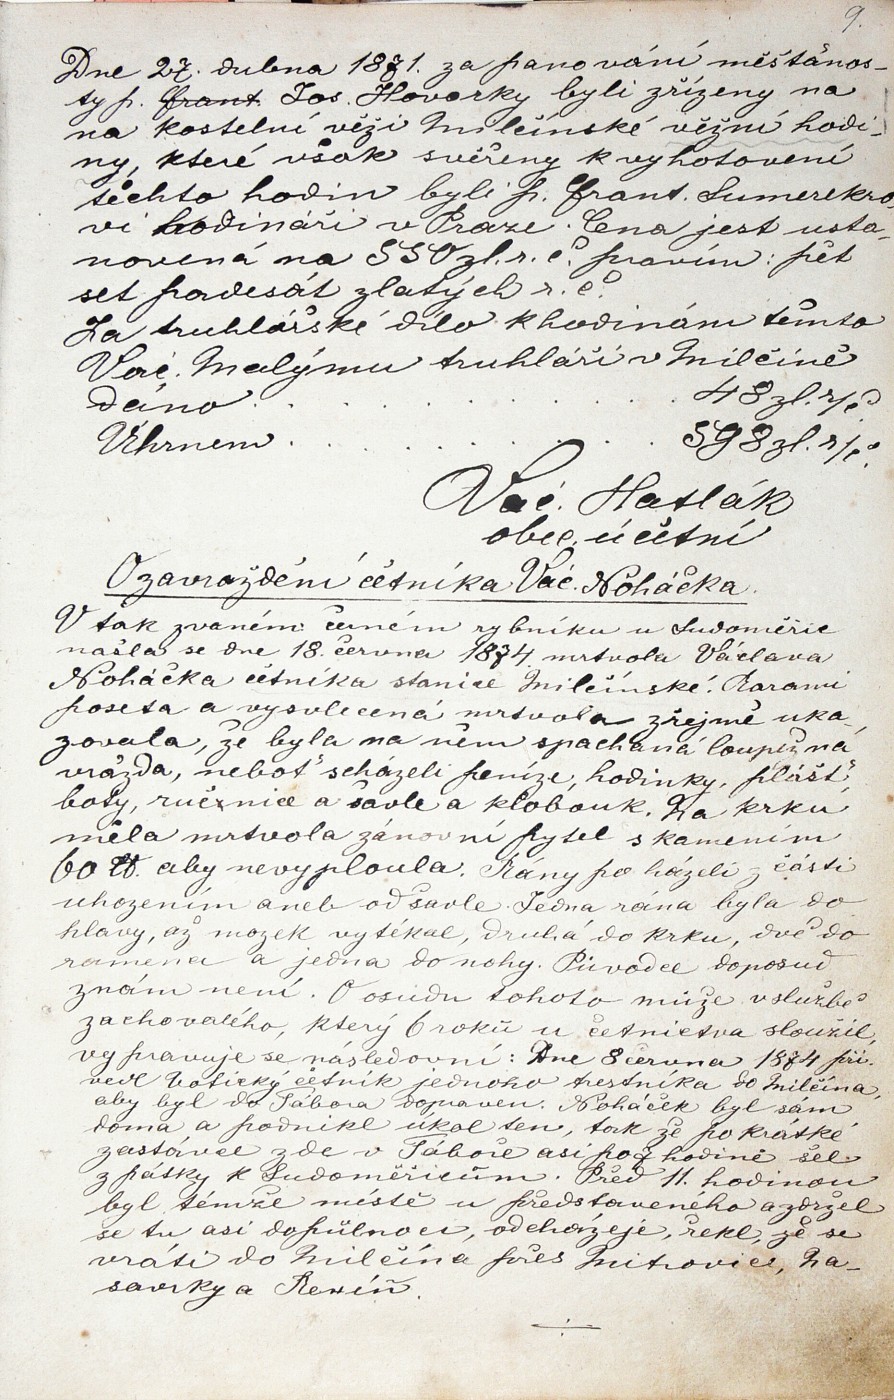 9.
Dne 27. dubna 1871. za panování měšťanos-
ty p. frant. Jos. Hovorky byli zřízeny na
na kostelní věži Milčínské věžní hodi-
ny, které však svěřeny k vyhotovení
těchto hodin byli p. frant. Sumerekro-
vi hodináři v Praze. Cena jest usta-
novená na 550 zl. r. č. pravím: pět
set padesát zlatých r. č.
Za truhlářské dílo k hodinám těmto
Vác. Malýmu truhláři v Milčíně
dáno . . . . . . . . . . 48 zl. r/č.
Úhrnem . . . . . . . . . 598 zl. r/č.
Vác. Hatlák
obec. účetní
O zavraždění četníka Vác. Noháčka.
V tak zvaném černém rybníku u Sudoměřic
našla se dne 18. června 1874 mrtvola Václava
Noháčka četníka stanice Milčínské. Ranami
poseta a vysvlecená mrtvola zřejmě uka-
zovala, že byla na něm spachaná loupežná
vražda, neboť scházeli peníze, hodinky, plášť
boty, ručnice a šavle a klobouk. Na krku
měla mrtvola zánovní pytel s kamením
60 ℔. aby nevyploula. Rány po házeli z části
uhozením aneb od šavle. Jedna rána byla do
hlavy, až mozek vytékal, druhá do krku, dvě do
ramena a jedna do nohy. Původce doposud
znám není. O osudu tohoto muže v službě
zachovalého, který 6 roků u četnictva sloužil,
vypravuje se následovní: Dne 8 června 1874 při-
vedl Votický četník jednoho trestníka do Milčína,
aby byl do Tábora dopraven. Noháček byl sám
doma a podnikl úkol ten, tak že po krátké
zastávce zde v Táboře asi po 7 hodině šel
zpátky k Sudoměřicům. Před 11. hodinou
byl témže místě u představeného a zdržel
se tu asi do půlnoci, odcházeje, řekl, že se
vrátí do Milčína přes Mitrovice, Na-
savrky a Reníň.